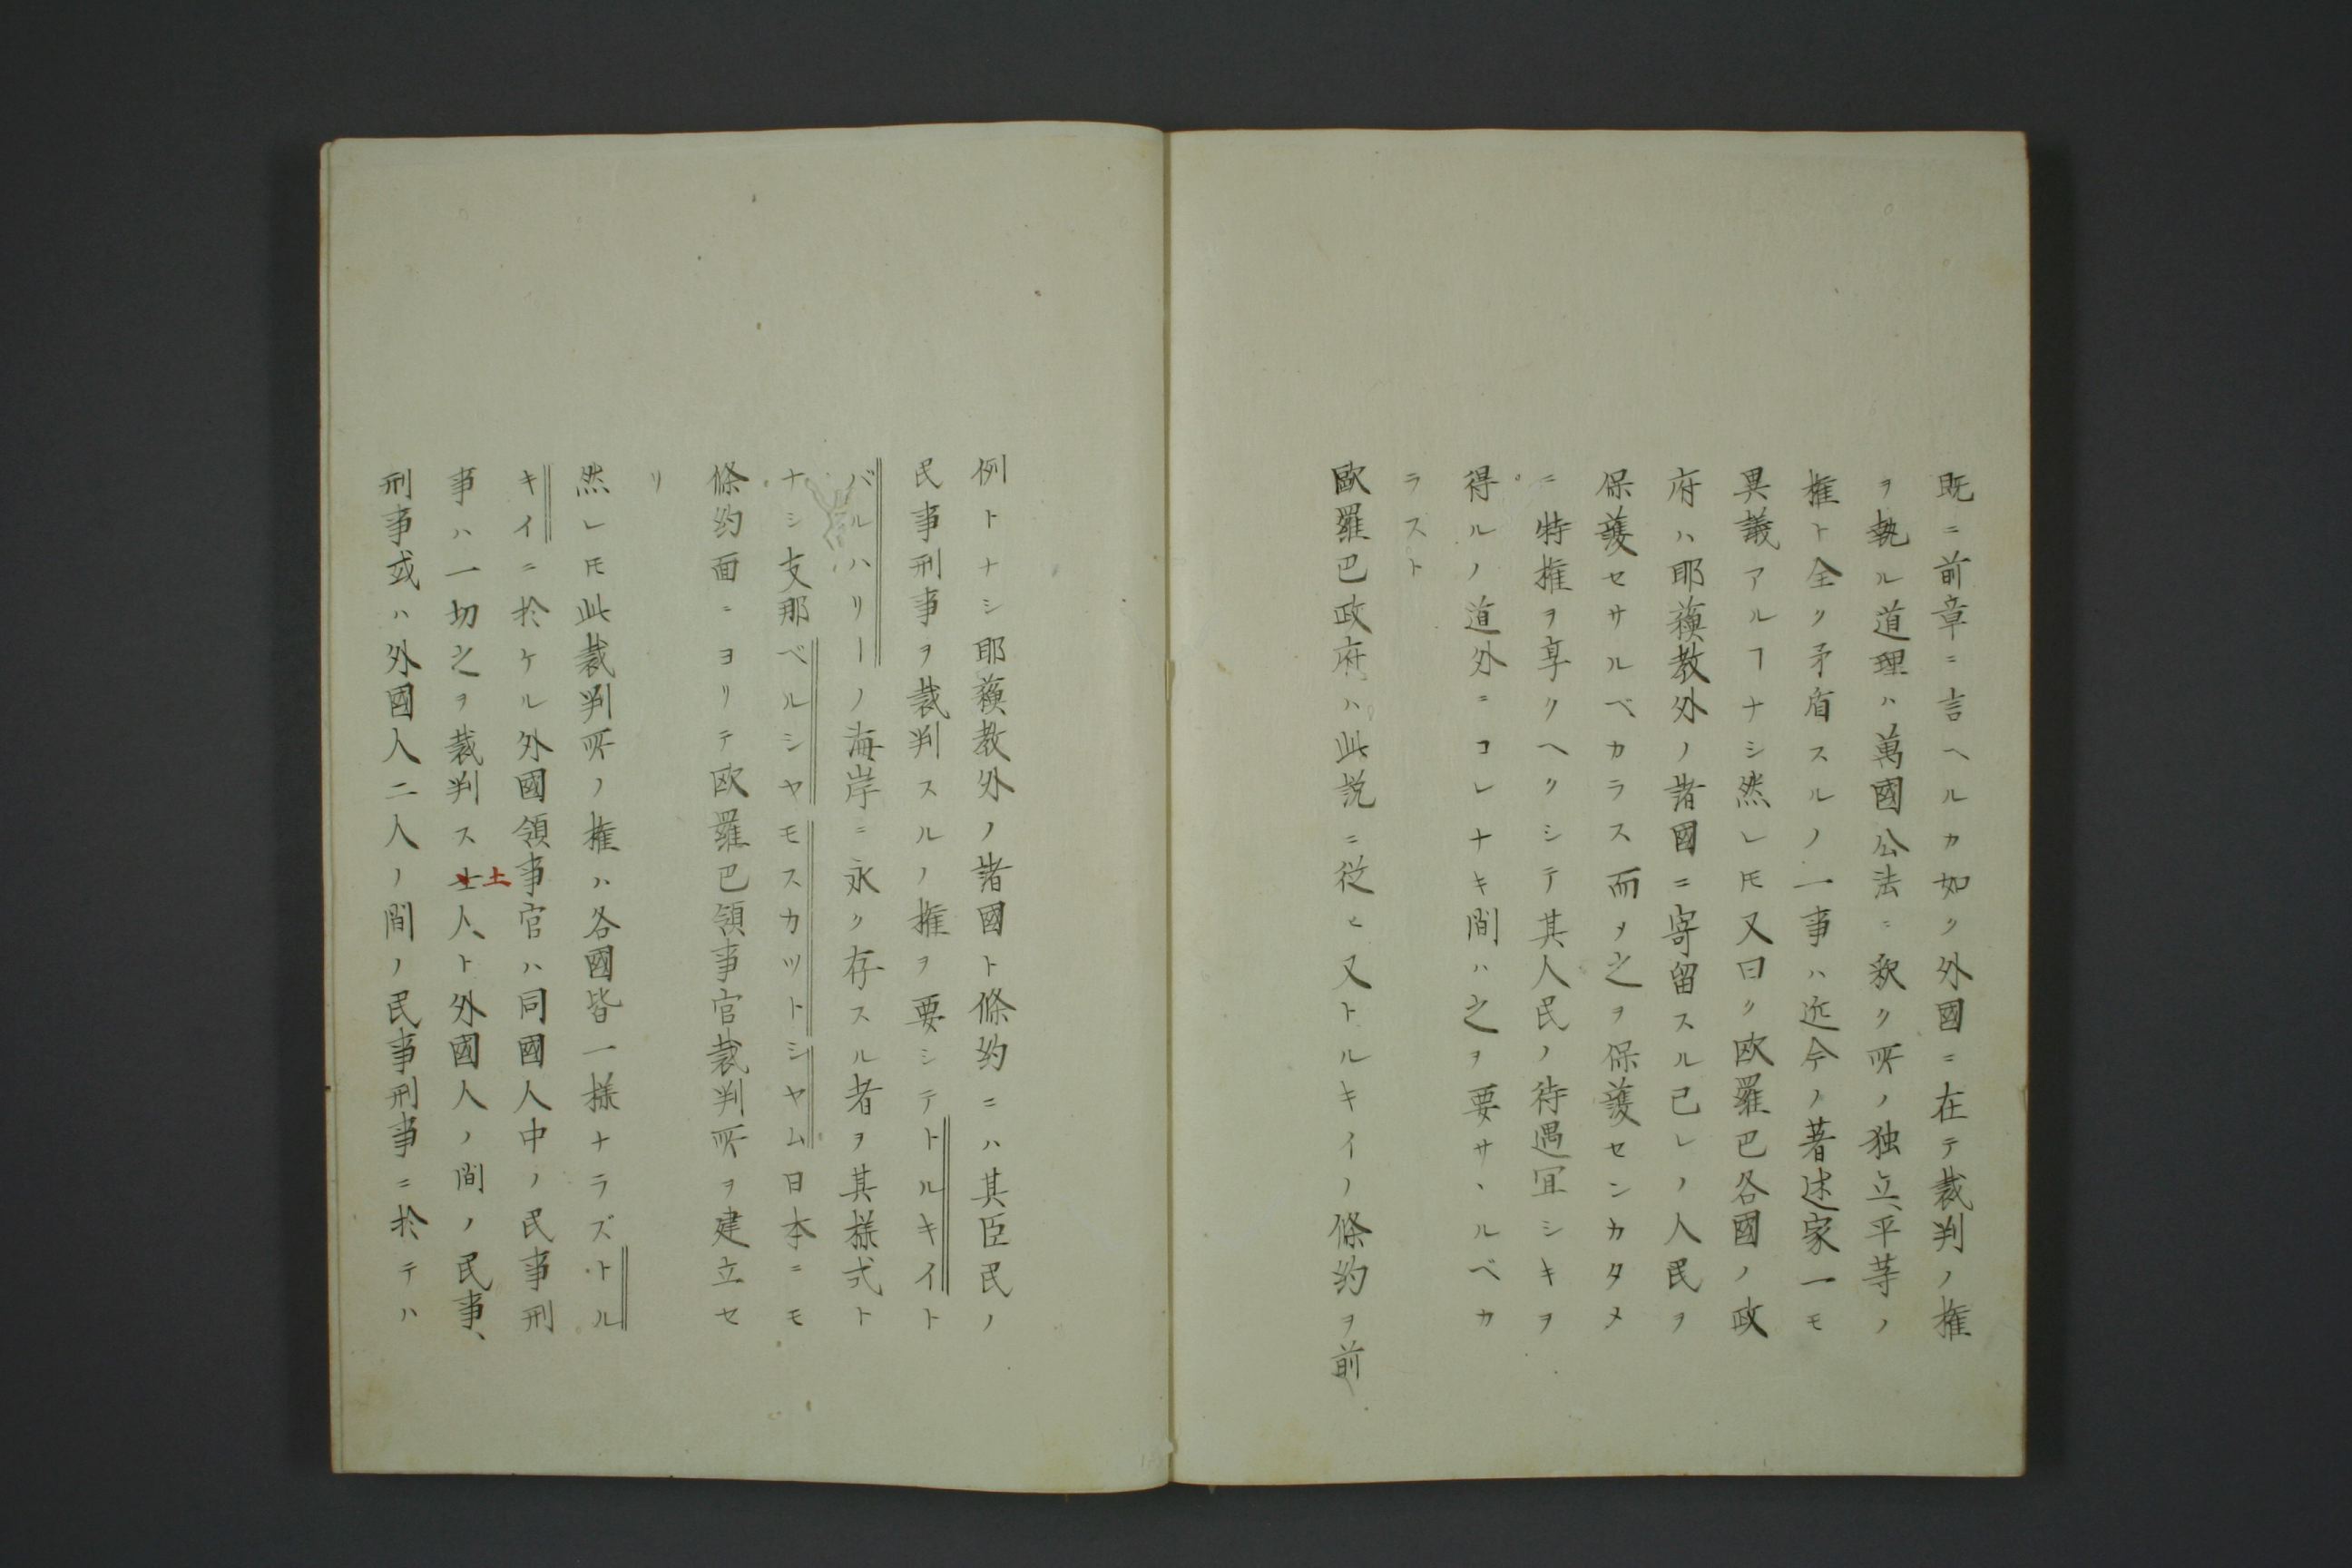 既ニ前章ニ言ヘルカ如ク外國ニ在テ裁判ノ権
ヲ執ル道理ハ萬國公法ニ釈ク所ノ独立平等ノ
権ト全ク矛盾スルノ一事ハ近今ノ著述家一モ
異議アルヿナシ然レ𪜈又曰ク欧羅巴各國ノ政
府ハ耶蘓教外ノ諸國ニ寄留スル己レノ人民ヲ
保護セサルベカラス而ヲ之ヲ保護センカタメ
ニ特権ヲ享クヘクシテ其人民ノ待遇冝シキヲ
得ルノ道外ニコレナキ間ハ之ヲ要サヽルベカ
ラスト
歐羅巴政府ハ此説ニ従ヒ又トルキイノ條約ヲ前
例トナシ耶蘓教外ノ諸國ト條約ニハ其臣民ノ
民事刑事ヲ裁判スルノ権ヲ要シテトルキイト
バルハリーノ海岸ニ永ク存スル者ヲ其様式ト
ナシ支那ベルシヤモスカツトシヤム日本ニモ
條約面ニヨリテ欧羅巴領事官裁判所ヲ建立セ
リ
然レ𪜈此裁判所ノ権ハ各國皆一様ナラズトル
キイニ於ケル外國領事官ハ同國人中ノ民事刑
事ハ一切之ヲ裁判ス土人ト外國人ノ間ノ民事、
刑事或ハ外國人二人ノ間ノ民事刑事ニ於テハ